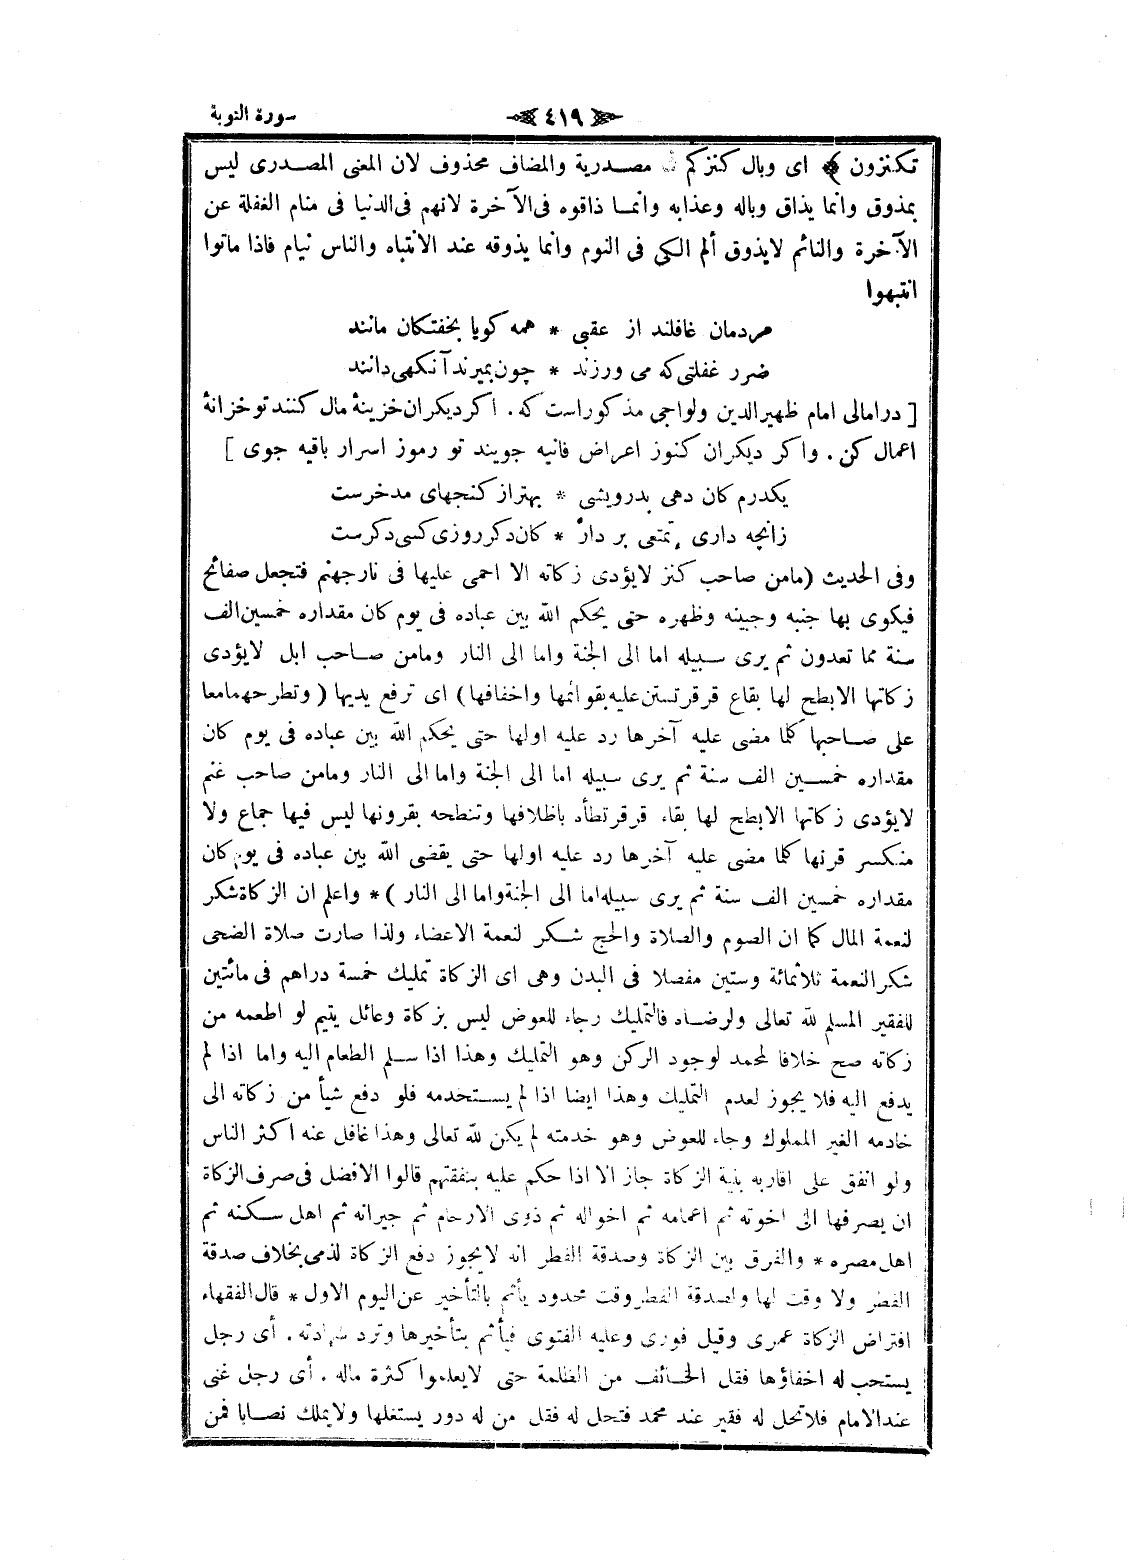 سورة التوبة
٤١٩
تكنزون ﴾ اى وبال كنزكم مصدرية والمضاف محذوف لان المعنى المصدرى ليس
بمذوق وانما يذاق وباله وعذابه وانما ذاقوه فى الآخرة لانهم فى الدنيا فى منام الغفلة عن
الآخرة والنائم لا يذوق ألم الكى فى النوم وانما يذوقه عند الانتباه والناس نيام فاذا ماتوا
انتبهوا
مردمان غافلند از عقبى * همه كويا بخفتكان مانند
ضرر غفلتى كه مى ورزند * چون بميرند آنكهى دانند
[ در امالى امام ظهير الدين ولواجى مذكور است كه . اكر ديكران خزينۀ مال كنند تو خزانۀ
اعمال كن . واكر ديكران كنوز اعراض فانيه جويند تو رموز اسرار باقيه جوى ]
يكدرم كان دهى بدرويشى * بهتر از كنجهاى مدخرست
زانچه دارى تمتعى بر دار * كان دكر روزى كسى دكرست
وفى الحديث (مامن صاحب كنز لايؤدى زكاته الا احمى عليها فى نار جهنم فتجعل صفائح
فيكوى بها جنبه وجبينه وظهره حتى يحكم الله بين عباده فى يوم كان مقداره خمسين الف
سنة مما تعدون ثم يرى سبيله اما الى الجنة واما الى النار ومامن صاحب ابل لايؤدى
زكاتها الا بطح لها بقاع قرقر تستن عليه بقوائمها واخفافها) اى ترفع يديها ( وتطرحهما معا
على صاحبها كلما مضى عليه آخرها رد عليه اولها حتى يحكم الله بين عباده فى يوم كان
مقداره خمسين الف سنة ثم يرى سبيله اما الى الجنة واما الى النار ومامن صاحب غنم
لايؤدى زكاتها الا بطح لها بقاء قرقر تطأه باظلافها وتنطحه بقرونها ليس فيها جماع ولا
منكسر قرنها كلما مضى عليه آخرها رد عليه اولها حتى يقضى الله بين عباده فى يوم كان
مقداره خمسين الف سنة ثم يرى سبيله اما الى الجنة واما الى النار )* واعلم ان الزكاة شكر
لنعمة المال كما ان الصوم والصلاة والحج شكر لنعمة الاعضاء ولذا صارت صلاة الضحى
شكر النعمة ثلاثمائة وستين مفصلا فى البدن وهى اى الزكاة تمليك خمسة دراهم فى مائتين
للفقير المسلم لله تعالى ولرضاه فالتمليك رجاء للعوض ليس بزكاة وعائل يتيم لو اطعمه من
زكاته صح خلافا لمحمد لوجود الركن وهو التمليك وهذا اذا سلم الطعام اليه واما اذا لم
يدفع اليه فلا يجوز لعدم التمليك وهذا ايضا اذا لم يستخدمه فلو دفع شيأ من زكاته الى
خادمه الغير المملوك وجاء للعوض وهو خدمته لم يكن لله تعالى وهذا غافل عنه اكثر الناس
ولو انفق على اقاربه بنية الزكاة جاز الا اذا حكم عليه بنفقتهم قالوا الافضل فى صرف الزكاة
ان يصرفها الى اخوته ثم اعمامه ثم اخواله ثم ذوى الارحام ثم جيرانه ثم اهل سكنه ثم
اهل مصره * والفرق بين الزكاة وصدقة الفطر انه لايجوز دفع الزكاة لذمى بخلاف صدقة
الفطر ولا وقت لها ولصدقة الفطر وقت محدود يأثم بالتأخير عن اليوم الاول * قال الفقهاء
افتراض الزكاة عمرى وقيل فورى وعليه الفتوى فيأثم بتأخيرها وترد شهادته . أى رجل
يستحب له اخفاؤها فقل الخائف من الظلمة حتى لايعلموا كثرة ماله . أى رجل غنى
عند الامام فلاتحل له فقير عند محمد فتحل له فقل من له دور يستغلها ولايملك نصابا فمن